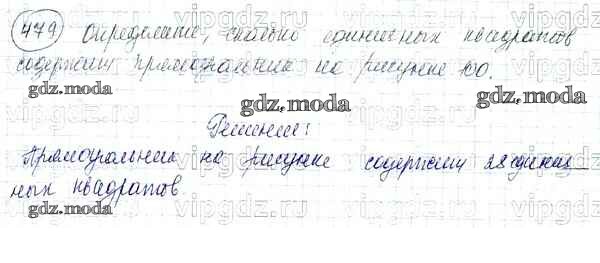 479 Определите, сколько единичных квадратов
содержит прямоугольник на рисунке 100.
gdz.moda gdz.moda gdz.moda
Решение:
Прямоугольник на рисунке содержит 28 единич
ных квадратов
gdz.moda gdz.moda gdz.moda